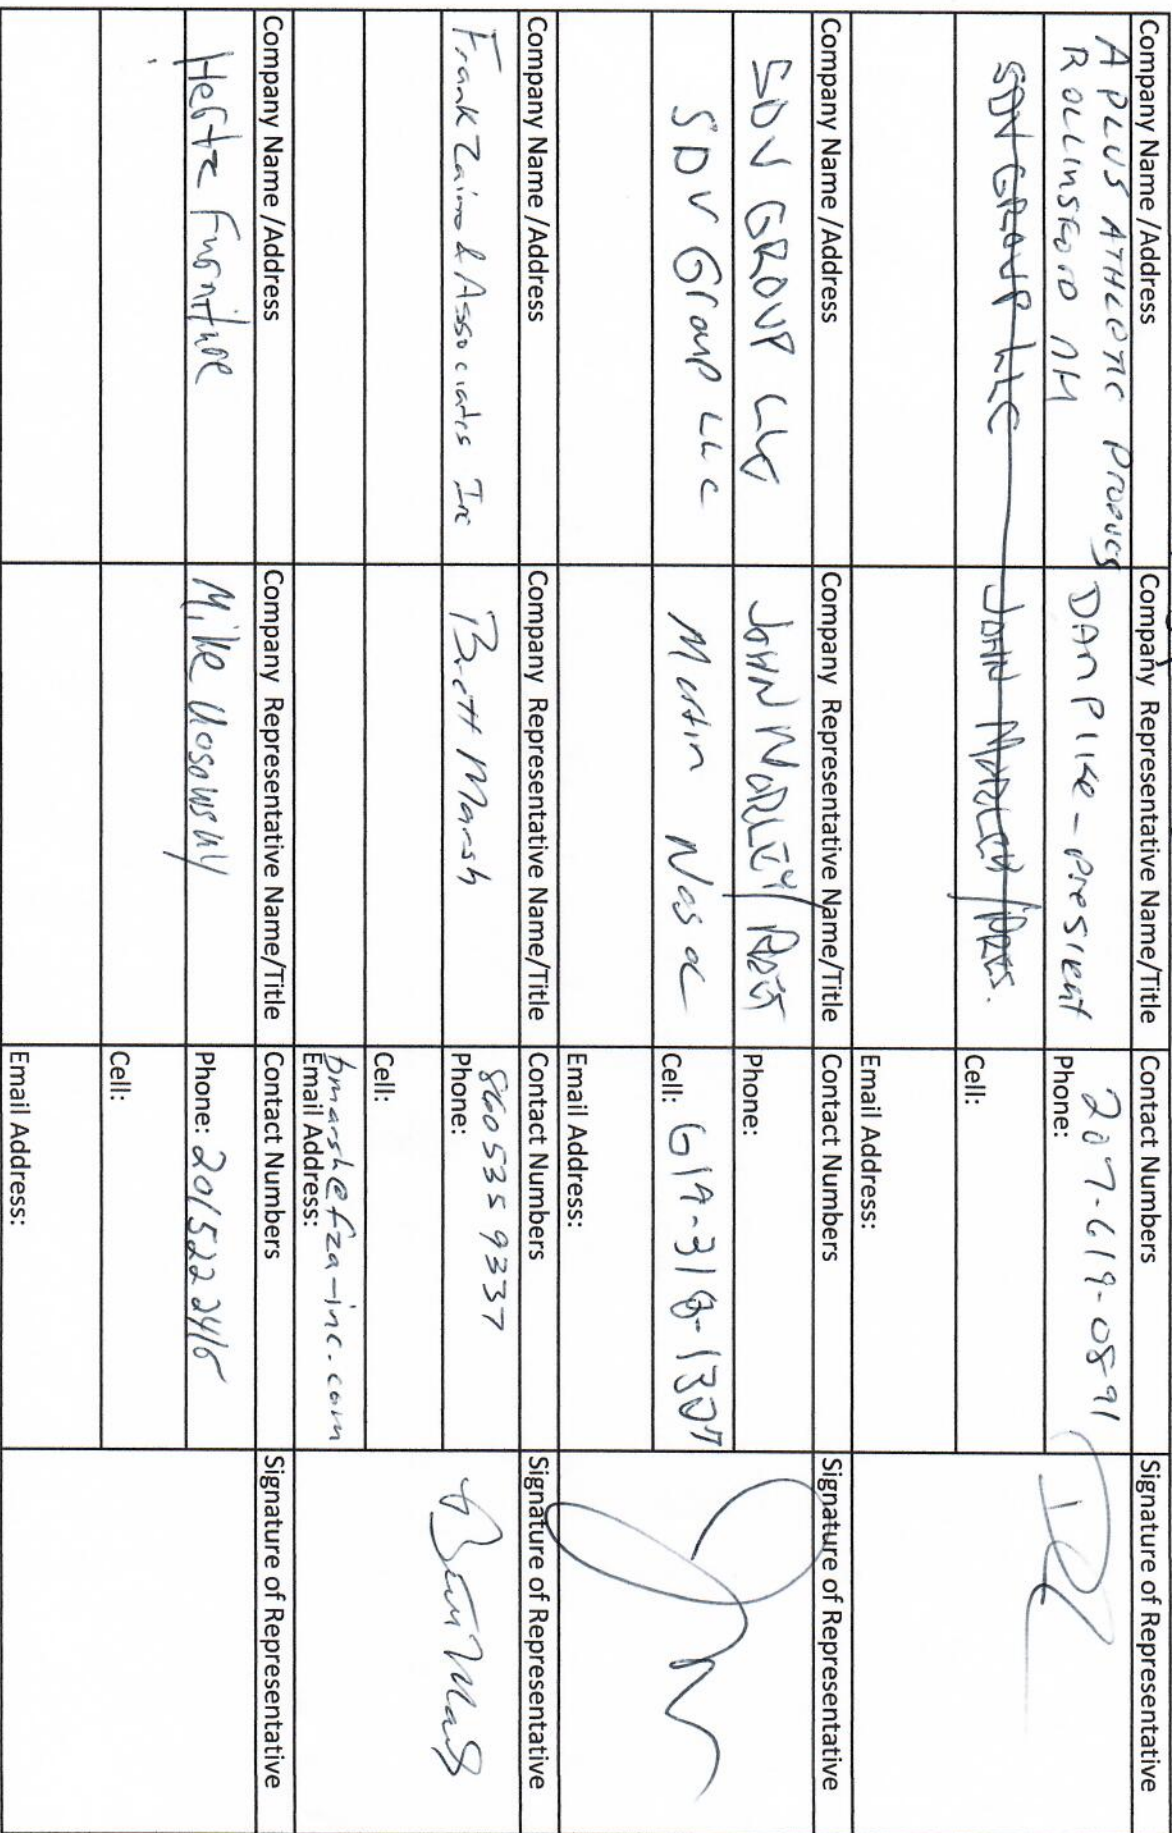 Company Name /Address Company Representative Name/Title Contact Numbers Signature of Representative
A PLUS ATHLETIC PRODUCTS DAN PIKE - PRESIDENT Phone: 207-619-0891
ROLLINSFORD NH
SDV GROUP LLC JOHN MORLEY/PRES. Cell:
Email Address:
Company Name /Address Company Representative Name/Title Contact Numbers Signature of Representative
SDV GROUP LLC JOHN MORLEY/ Phone:
SDV Group LLC Martin Cell: 619-318-1307
Email Address:
Company Name /Address Company Representative Name/Title Contact Numbers Signature of Representative
Frank Zaino & Associates Inc Brett Marsh Phone: 860 535 9337
Cell:
bmarsh@fza-inc.com
Email Address:
Company Name /Address Company Representative Name/Title Contact Numbers Signature of Representative
Hertz Furniture Mike Phone: 201 522 2416
Cell:
Email Address: